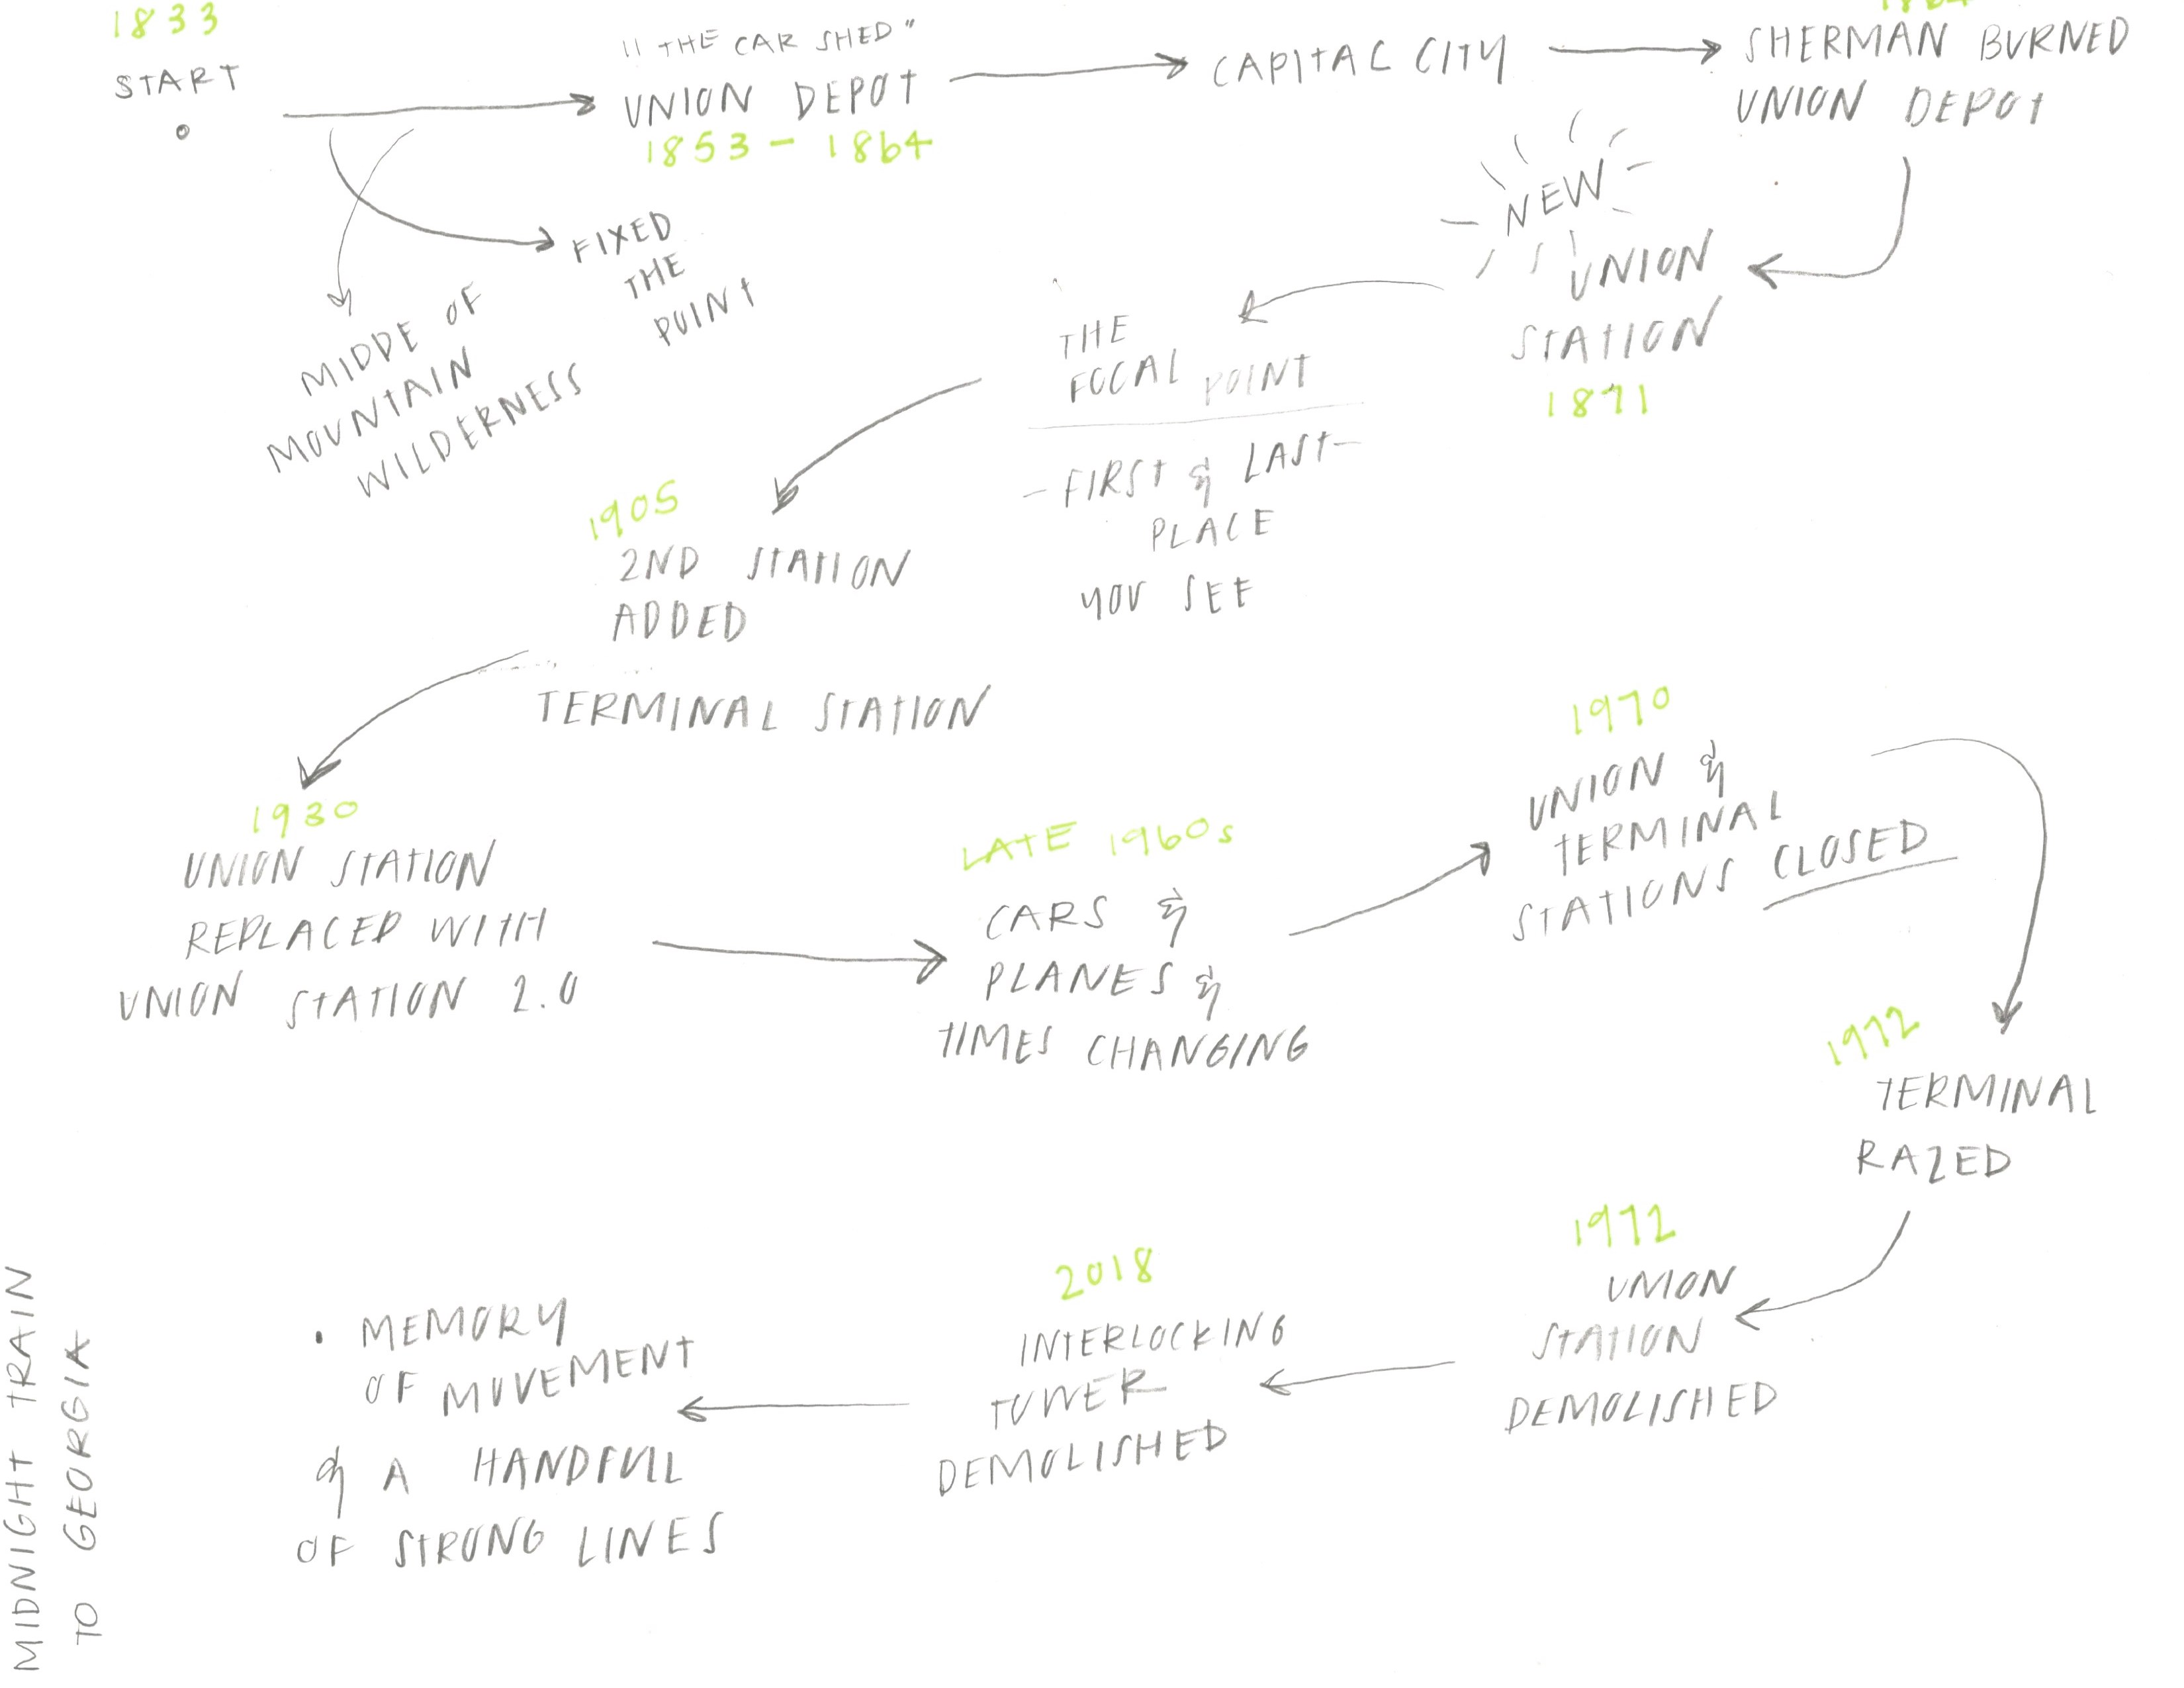 1833
START
"THE CAR SHED"
UNION DEPOT
1853 - 1864
CAPITAL CITY
SHERMAN BURNED
UNION DEPOT
FIXED
THE
POINT
MIDDE OF
MOUNTAIN
WILDERNESS
NEW
UNION
STATION
1871
THE
FOCAL POINT
- FIRST & LAST -
PLACE
YOU SEE
1905
2ND STATION
ADDED
TERMINAL STATION
1930
UNION STATION
REPLACED WITH
UNION STATION 2.0
LATE 1960s
CARS &
PLANES &
TIMES CHANGING
1970
UNION &
TERMINAL
STATIONS CLOSED
1972
TERMINAL
RAZED
1972
UNION
STATION
DEMOLISHED
2018
INTERLOCKING
TOWER
DEMOLISHED
• MEMORY
OF MOVEMENT
& A HANDFULL
OF STRONG LINES
MIDNIGHT TRAIN
TO GEORGIA